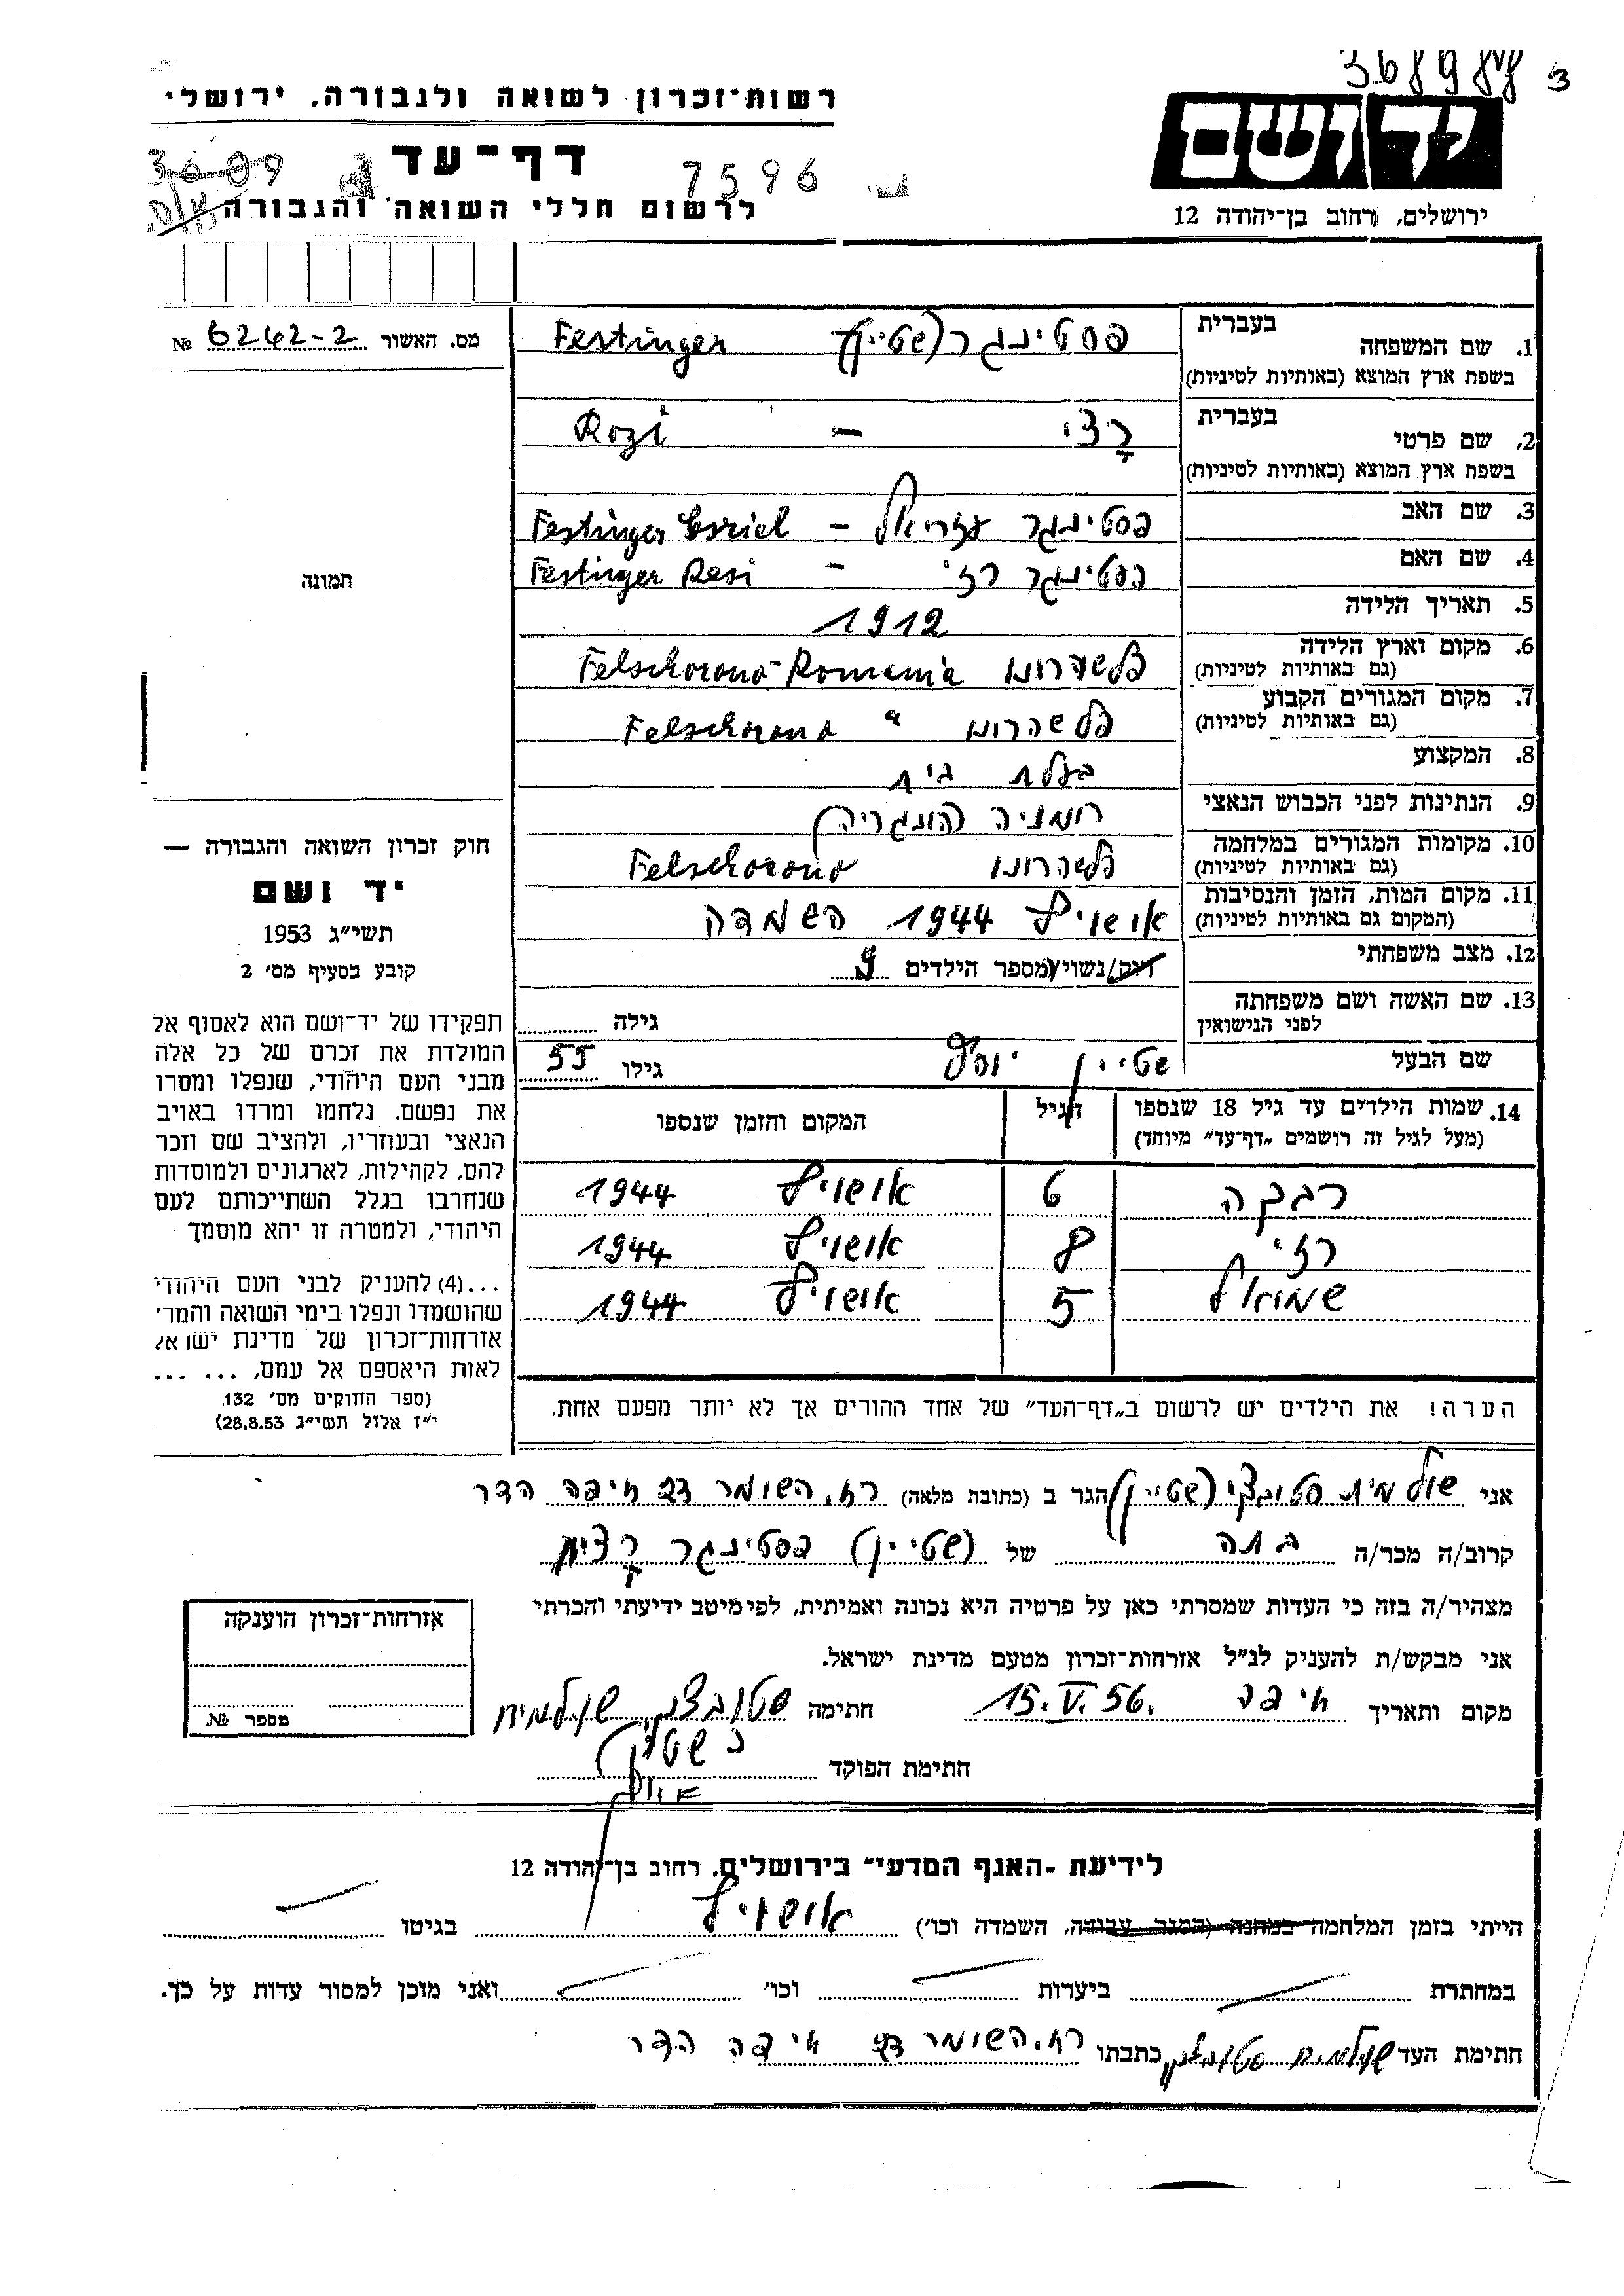 368988 3
רשות־זכרון לשואה ולגבורה, ירושלי
יד ושם
דף־עד
7596
3609
לרשום חללי השואה והגבורה
ירושלים, רחוב בן־יהודה 12
מס. האשור № 6242-2
1. שם המשפחה בעברית פסטינגר (שטיין) Festinger
בשפת ארץ המוצא (באותיות לטיניות)
2. שם פרטי בעברית רָצי – Rozi
בשפת ארץ המוצא (באותיות לטיניות)
3. שם האב פסטינגר עזריאל – Festinger Esriel
4. שם האם פסטינגר רזי – Festinger Resi
תמונה
5. תאריך הלידה 1912
6. מקום וארץ הלידה פלשהרונו Felschorono-Romenia
(גם באותיות לטיניות)
7. מקום המגורים הקבוע פלשהרונו " Felschorono
(גם באותיות לטיניות)
8. המקצוע בעלת בית
9. הנתינות לפני הכבוש הנאצי רומניה (הונגריה)
10. מקומות המגורים במלחמה פלשהרונו Felschorono
(גם באותיות לטיניות)
11. מקום המות, הזמן והנסיבות אושויץ 1944 השמדה
(המקום גם באותיות לטיניות)
12. מצב משפחתי רווק/נשוי/מספר הילדים 9
13. שם האשה ושם משפחתה
לפני הנישואין גילה
שם הבעל שטיין יוסף גילו 55
14. שמות הילדים עד גיל 18 שנספו הגיל המקום והזמן שנספו
(מעל לגיל זה רושמים „דף־עד" מיוחד)
רבקה 6 אושויץ 1944
רזי 8 אושויץ 1944
שמואל 5 אושויץ 1944
הערה! את הילדים יש לרשום ב„דף־העד" של אחד ההורים אך לא יותר מפעם אחת.
חוק זכרון השואה והגבורה —
יד ושם
תשי"ג 1953
קובע בסעיף מס' 2
תפקידו של יד־ושם הוא לאסוף אל
המולדת את זכרם של כל אלה
מבני העם היהודי, שנפלו ומסרו
את נפשם, נלחמו ומרדו באויב
הנאצי ובעוזריו, ולהציב שם וזכר
להם, לקהילות, לארגונים ולמוסדות
שנחרבו בגלל השתייכותם לעם
היהודי, ולמטרה זו יהא מוסמך
...(4) להעניק לבני העם היהודי
שהושמדו ונפלו בימי השואה והמרי
אזרחות־זכרון של מדינת ישראל
לאות היאספם אל עמם, ... ...
(ספר החוקים מס' 132,
י"ז אלול תשי"ג 28.8.53)
אני שולמית סטובצקי (שטיין) הגר ב (כתובת מלאה) רח. השומר חיפה הדר
קרוב/ה מכר/ה בתה של (שטיין) פסטינגר
מצהיר/ה בזה כי העדות שמסרתי כאן על פרטיה היא נכונה ואמיתית, לפי מיטב ידיעתי והכרתי
אני מבקש/ת להעניק לנ"ל אזרחות־זכרון מטעם מדינת ישראל.
מקום ותאריך חיפה 15.V.56. חתימה שולמית
חתימת הפוקד
אזרחות־זכרון הוענקה
מספר №
לידיעת ־האגף המדעי" בירושלים, רחוב בן־יהודה 12
הייתי בזמן המלחמה במחנה (הסגר, עבודה, השמדה וכו') אושויץ בגיטו
במחתרת ביערות וכו' ואני מוכן למסור עדות על כך.
חתימת העד שולמית כתבתו רח. השומר חיפה הדר